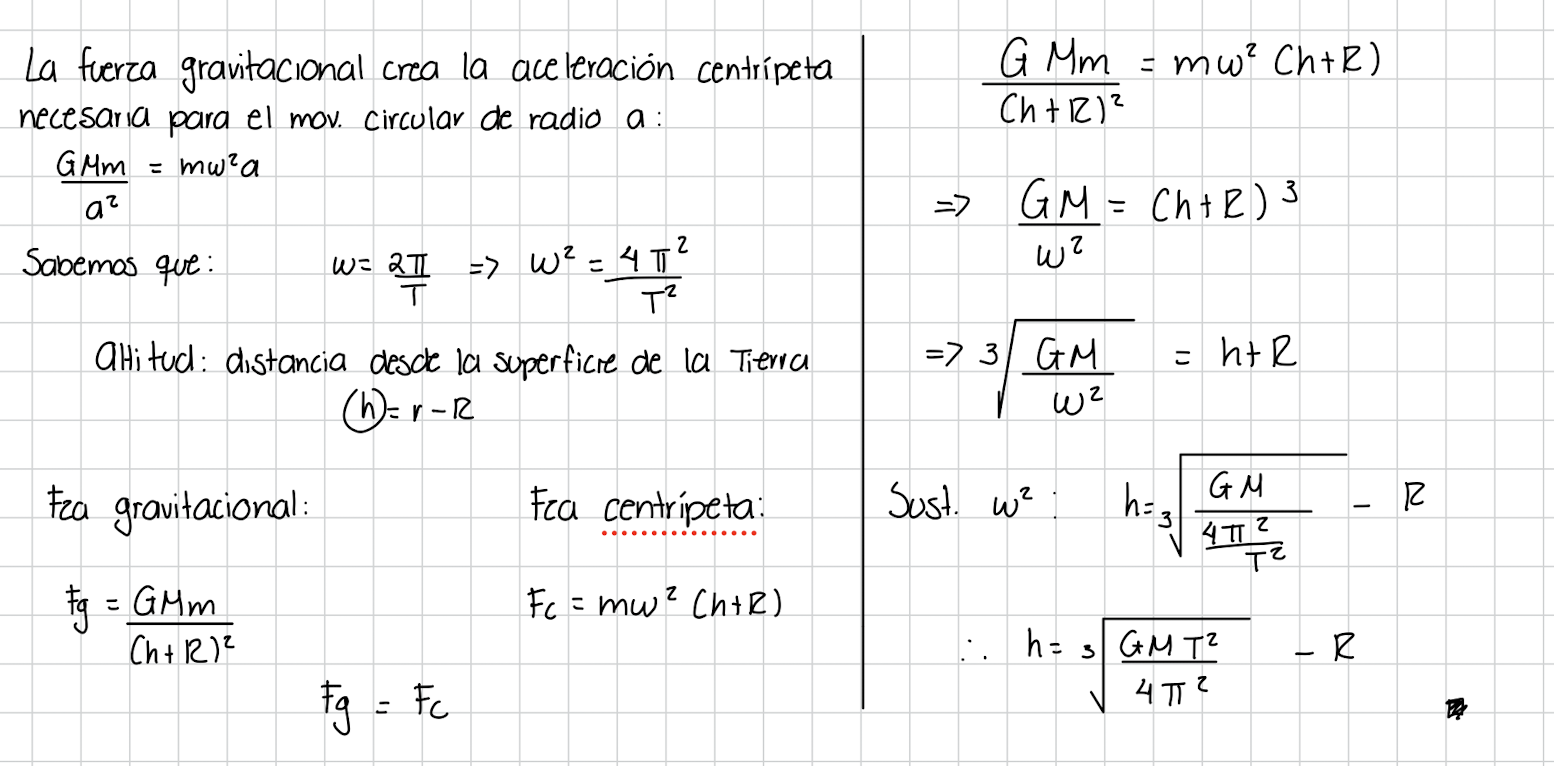 La fuerza gravitacional crea la aceleración centrípeta
necesaria para el mov. circular de radio a:
GMm/a² = mω²a
Sabemos que: ω = 2π/T => ω² = 4π²/T²
altitud: distancia desde la superficie de la Tierra
(h) = r - R
Fza gravitacional: Fza centrípeta:
Fg = GMm/(h+R)² Fc = mω² (h+R)
Fg = Fc
GMm/(h+R)² = mω² (h+R)
=> GM/ω² = (h+R)³
=> ³√(GM/ω²) = h+R
Sust. ω²: h = ³√(GM/(4π²/T²)) - R
∴ h = ³√(GMT²/4π²) - R